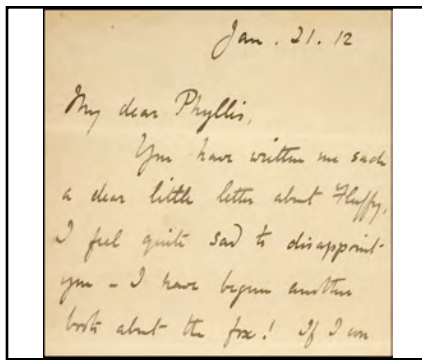 Jan. 21. 12
My dear Phyllis,
You have written me such
a dear little letter about Fluffy,
I feel quite sad to disappoint
you - I have begun another
book about the fox! If I can